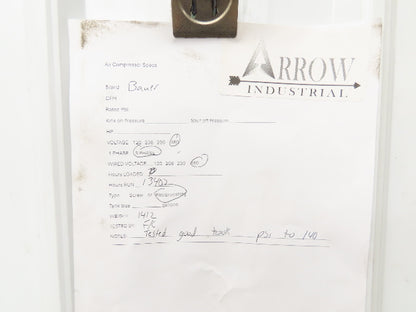 ARROW
INDUSTRIAL
Air Compressor Specs
Brand Bauer
CFM
Rated PSI
Kick on Pressure Shut off Pressure
HP
VOLTAGE 120 208 230 460
1 PHASE 3 PHASE
WIRED VOLTAGE 120 208 230 460
Hours LOADED
Hours RUN 13402
Type Screw or
Tank Size gallons
WEIGHT 1412
TESTED BY
NOTES Tested good took psi to 140